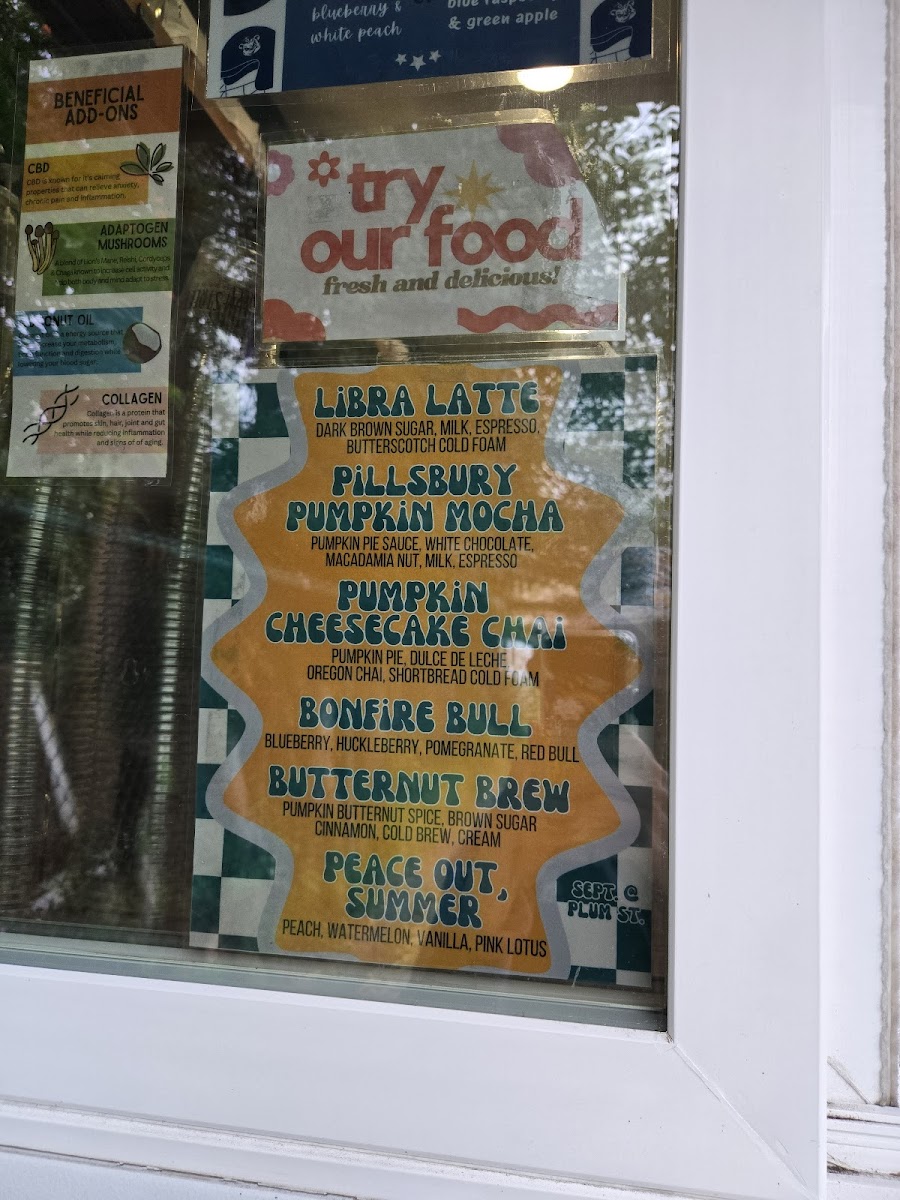 blueberry &
white peach
& green apple
BENEFICIAL
ADD-ONS
CBD
CBD is known for it's calming
properties that can relieve anxiety,
chronic pain and inflammation.
ADAPTOGEN
MUSHROOMS
A blend of Lion's Mane, Reishi, Cordyceps
& Chaga known to increase cell activity and
body and mind adapt to stress.
NUT OIL
energy source that
your metabolism,
and digestion while
your blood sugar.
COLLAGEN
Collagen is a protein that
promotes skin, hair, joint and gut
health while reducing inflammation
and signs of of aging.
try
our food
fresh and delicious!
LiBRA LATTE
DARK BROWN SUGAR, MILK, ESPRESSO,
BUTTERSCOTCH COLD FOAM
PiLLSBURY
PUMPKiN MOCHA
PUMPKIN PIE SAUCE, WHITE CHOCOLATE,
MACADAMIA NUT, MILK, ESPRESSO
PUMPKiN
CHEESECAKE CHAi
PUMPKIN PIE, DULCE DE LECHE,
OREGON CHAI, SHORTBREAD COLD FOAM
BONFiRE BULL
BLUEBERRY, HUCKLEBERRY, POMEGRANATE, RED BULL
BUTTERNUT BREW
PUMPKIN BUTTERNUT SPICE, BROWN SUGAR
CINNAMON, COLD BREW, CREAM
PEACE OUT,
SUMMER
PEACH, WATERMELON, VANILLA, PINK LOTUS
SEPT. @
PLUM ST.